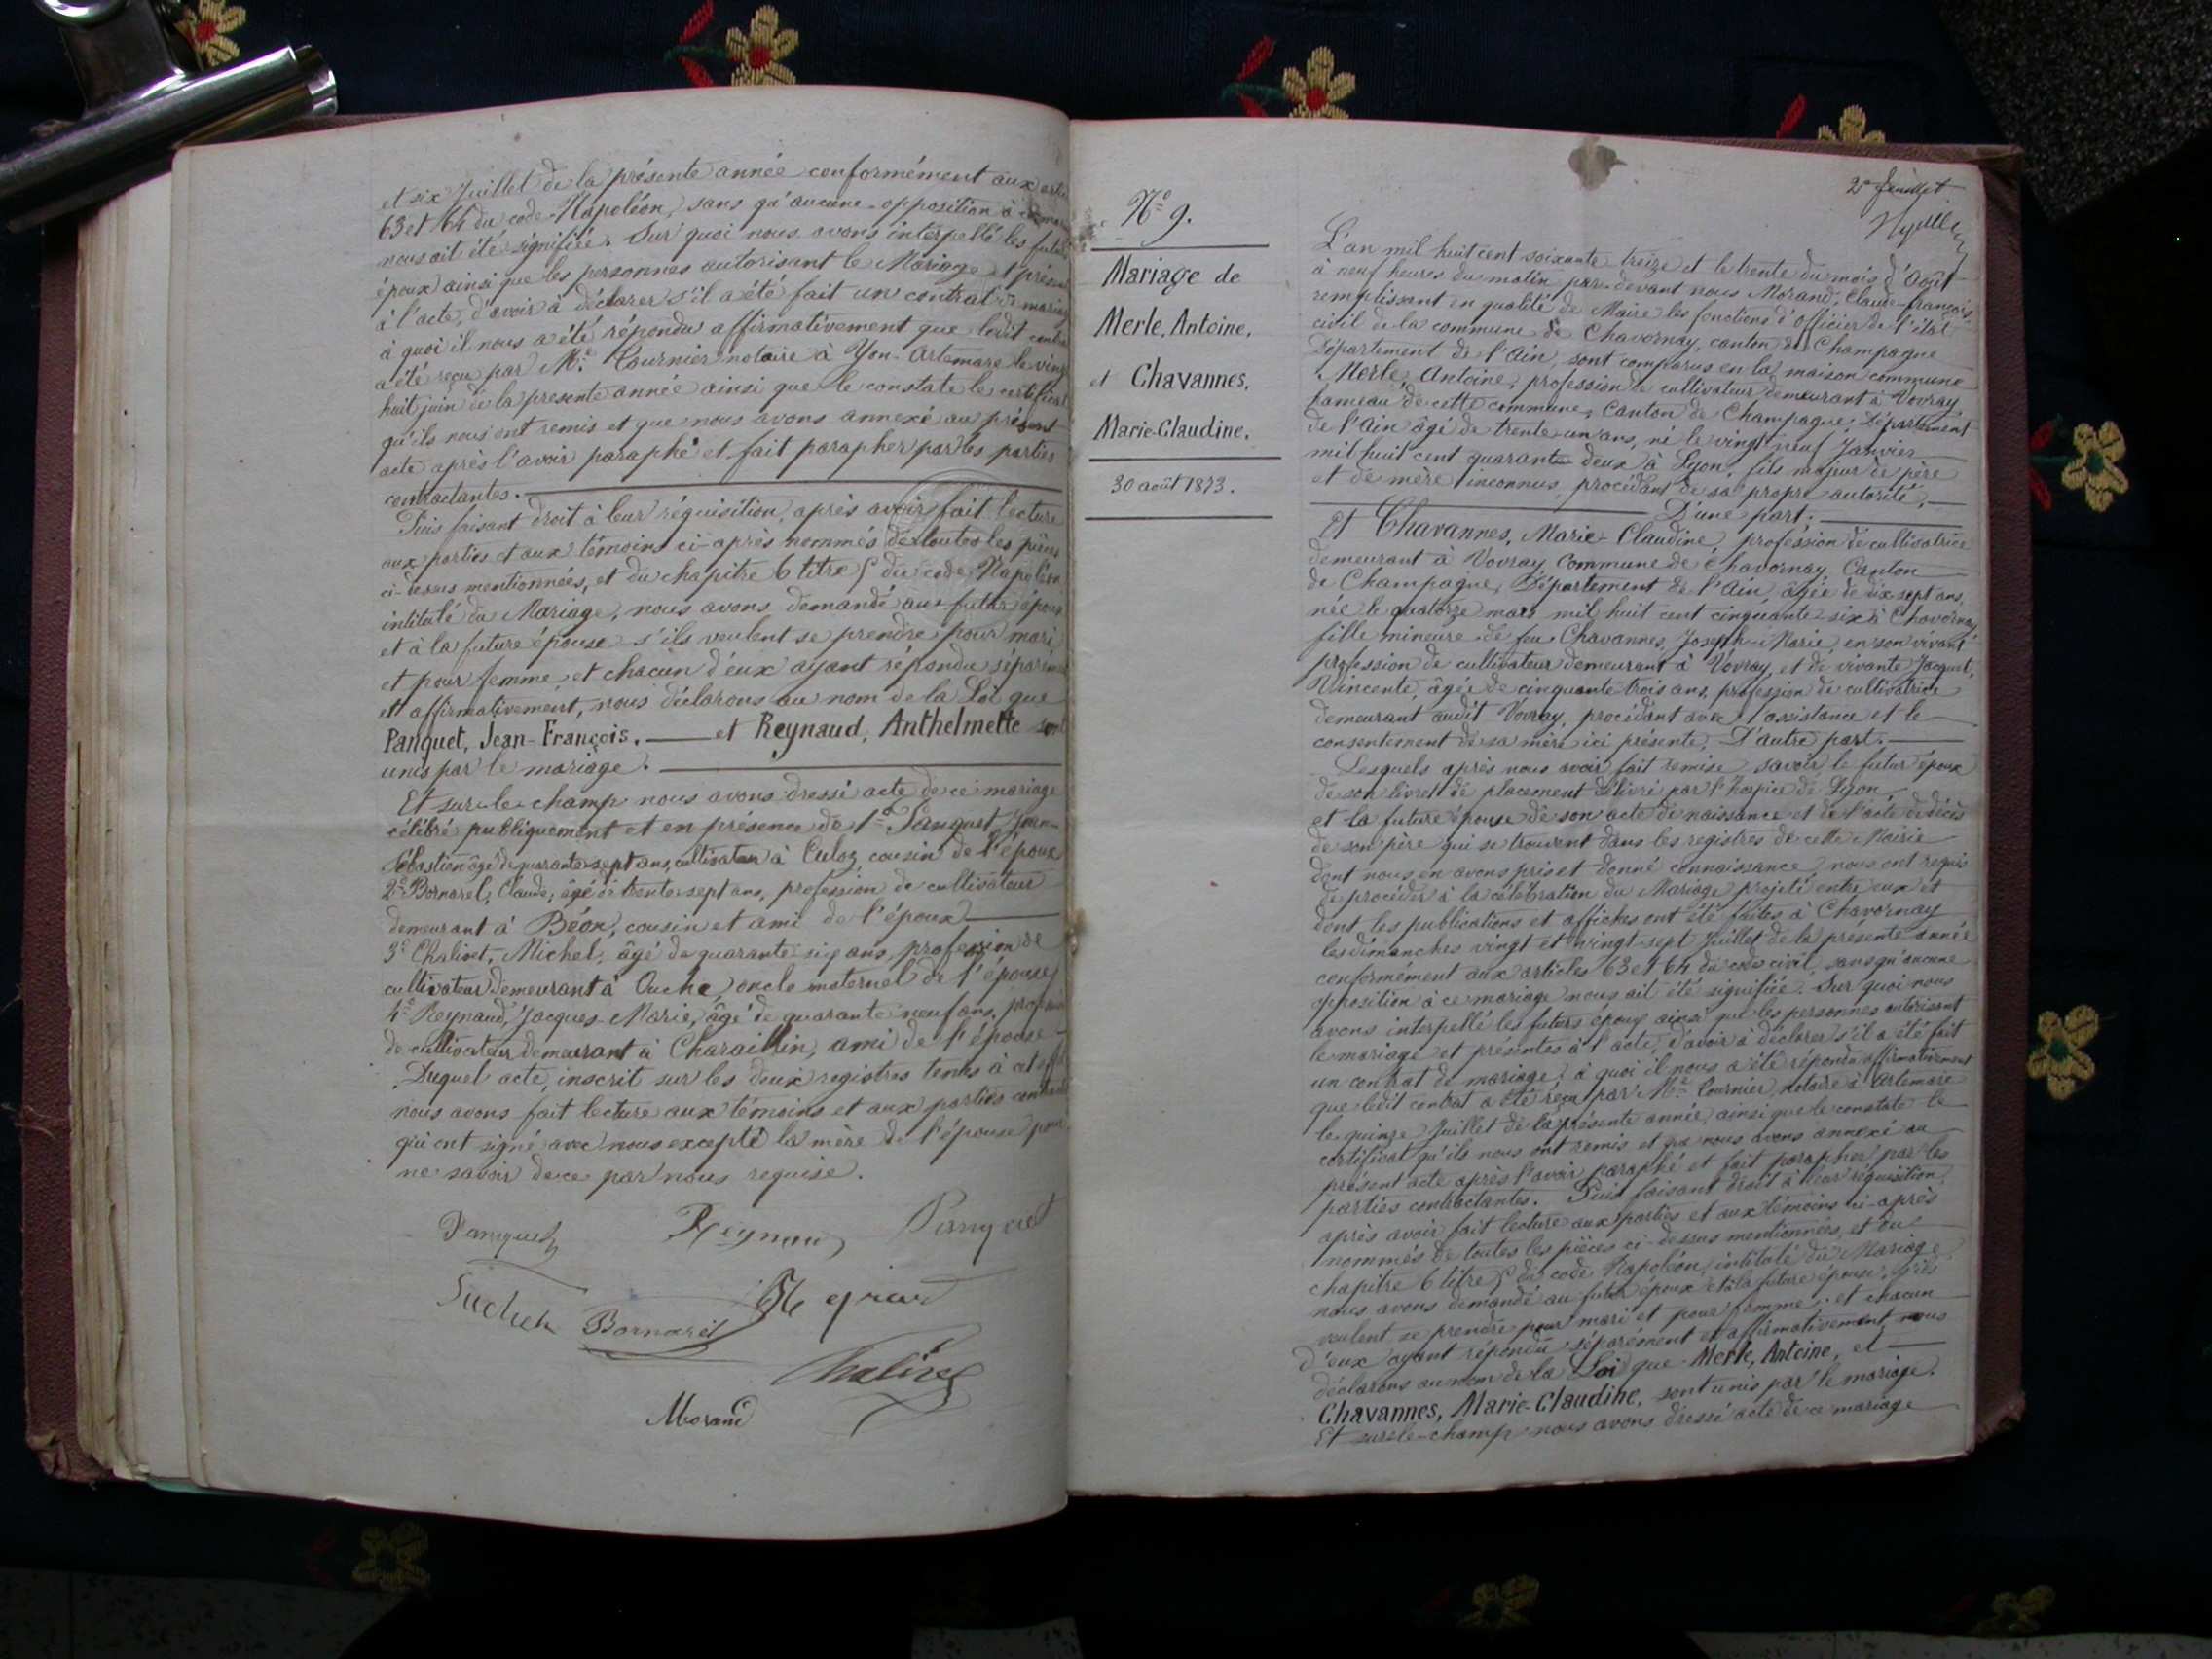 et six Juillet de la présente année conformément aux
63 et 64 du code Napoléon, sans qu'aucune opposition à
nous ait été signifiée. Sur quoi nous avons interpellé les futurs
époux ainsi que les personnes autorisant le Mariage et
à l'acte, d'avoir à déclarer s'il a été fait un contrat de mariage
à quoi il nous a été répondu affirmativement que ledit
a été reçu par Me. Cournier notaire à Yon-Artemare le vingt
huit juin de la présente année ainsi que le constate le certificat
qu'ils nous ont remis et que nous avons annexé au présent
acte après l'avoir paraphé et fait parapher par les parties
contractantes.
Puis faisant droit à leur réquisition, après avoir fait lecture
aux parties et aux témoins ci-après nommés de toutes les pièces
ci-dessus mentionnées, et du chapitre 6 titre 5 du code Napoléon
intitulé du Mariage, nous avons demandé au futur époux
et à la future épouse s'ils veulent se prendre pour mari
et pour femme, et chacun d'eux ayant répondu séparément
et affirmativement, nous déclarons au nom de la Loi que
Panquet, Jean-François. et Reynaud, Anthelmette sont
unis par le mariage.
Et sur-le-champ nous avons dressé acte de ce mariage
célébré publiquement et en présence de 1e Panquet Jean-
Sébastien âgé de quarante-sept ans, cultivateur à Culoz cousin de l'époux
2e Bornarel, Claude, âgé de trente-sept ans, profession de cultivateur
demeurant à Béon, cousin et ami de l'époux
3e Chalivet, Michel, âgé de quarante six ans, profession de
cultivateur demeurant à Ouche, oncle maternel de l'épouse
4e Reynaud, Jacques-Marie, âgé de quarante neuf ans, profession
de cultivateur demeurant à Charaillin, ami de l'épouse
Duquel acte, inscrit sur les deux registres tenus à cet effet
nous avons fait lecture aux témoins et aux parties
qui ont signé avec nous excepté la mère de l'épouse pour
ne savoir de ce par nous requise.
Panquet Reynaud Panquet
Bornarel
Morand
No 9.
Mariage de
Merle, Antoine,
et Chavannes,
Marie-Claudine.
30 août 1873.
2e feuillet
L'an mil huit cent soixante treize et le trente du mois d'Août
à neuf heures du matin par-devant nous Morand, Claude-françois
remplissant en qualité de Maire les fonctions d'officier de l'état
civil de la commune de Chavornay, canton de Champagne
Département de l'Ain, sont comparus en la maison commune
Merle, Antoine, profession de cultivateur demeurant à Vovray
hameau de cette commune, Canton de Champagne, Département
de l'Ain âgé de trente un ans, né le vingt neuf Janvier
mil huit cent quarante deux à Lyon, fils majeur de père
et de mère inconnus, procédant de sa propre autorité,
D'une part;
Et Chavannes, Marie-Claudine, profession de cultivatrice
demeurant à Vovray, commune de Chavornay, Canton
de Champagne, Département de l'Ain, âgée de dix sept ans,
née le quatorze mars mil huit cent cinquante-six à Chavornay
fille mineure de feu Chavannes, Joseph-Marie, en son vivant
profession de cultivateur demeurant à Vovray, et de vivante Jacquet,
Vincente, âgée de cinquante trois ans, profession de cultivatrice
demeurant audit Vovray, procédant avec l'assistance et le
consentement de sa mère ici présente, D'autre part.
Lesquels après nous avoir fait remise, savoir le futur époux
de son livret de placement délivré par l'hospice de Lyon
et la future épouse de son acte de naissance et de l'acte de décès
de son père qui se trouvent dans les registres de cette Mairie
dont nous en avons pris et donné connaissance, nous ont requis
de procéder à la célébration du Mariage projeté entre eux et
dont les publications et affiches ont été faites à Chavornay
les dimanches vingt et vingt-sept Juillet de la présente année
conformément aux articles 63 et 64 du code civil, sans qu'aucune
opposition à ce mariage nous ait été signifiée. Sur quoi nous
avons interpellé les futurs époux ainsi que les personnes autorisant
le mariage et présentes à l'acte, d'avoir à déclarer s'il a été fait
un contrat de mariage, à quoi il nous a été répondu affirmativement
que ledit contrat a été reçu par Me Cournier, notaire à Artemare
le quinze Juillet de la présente année, ainsi que le constate le
certificat qu'ils nous ont remis et que nous avons annexé au
présent acte après l'avoir paraphé et fait parapher par les
parties contractantes. Puis faisant droit à leur réquisition,
après avoir fait lecture aux parties et aux témoins ci-après
nommés de toutes les pièces ci-dessus mentionnées, et du
chapitre 6 titre 5 du code Napoléon, intitulé du Mariage,
nous avons demandé au futur époux et à la future épouse, s'ils
veulent se prendre pour mari et pour femme; et chacun
d'eux ayant répondu séparément et affirmativement, nous
déclarons au nom de la Loi que Merle, Antoine, et
Chavannes, Marie-Claudine, sont unis par le mariage.
Et sur-le-champ nous avons dressé acte de ce mariage